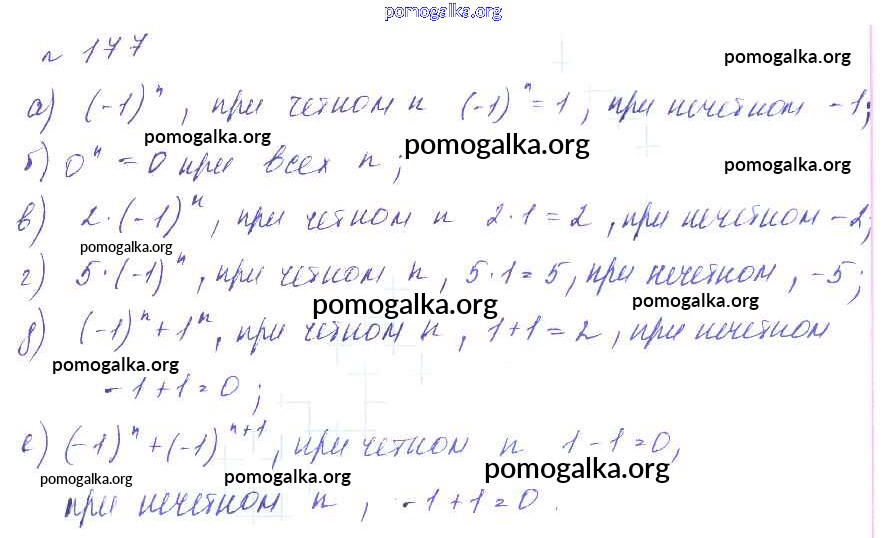 pomogalka.org
n 177
pomogalka.org
а) (-1)^n , при четном n (-1)^n = 1 , при нечетном -1;
pomogalka.org pomogalka.org
б) 0^n = 0 при всех n ;
pomogalka.org
в) 2·(-1)^n , при четном n 2·1 = 2 , при нечетном -2;
pomogalka.org
г) 5·(-1)^n , при четном n , 5·1 = 5 , при нечетном , -5 ;
pomogalka.org pomogalka.org
д) (-1)^n + 1^n , при четном n , 1+1 = 2 , при нечетном
pomogalka.org
-1+1=0 ;
е) (-1)^n + (-1)^{n+1} , при четном n 1-1=0,
pomogalka.org pomogalka.org pomogalka.org
при нечетном n , -1+1=0 .